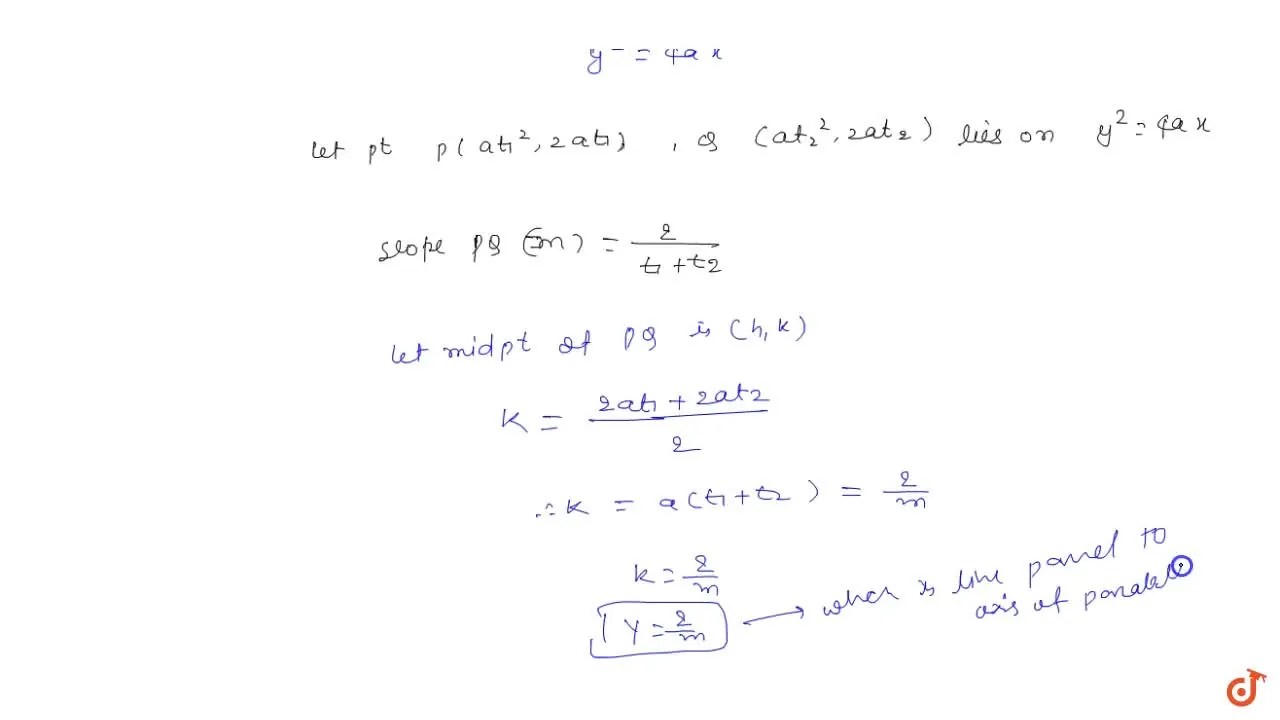 y² = 4ax
let pt P(at₁², 2at₁) , Q (at₂², 2at₂) lies on y² = 4ax
slope PQ (=m) = 2/(t₁+t₂)
let midpt of PQ is (h, k)
K = (2at₁ + 2at₂)/2
∴ K = a(t₁+t₂) = 2/m
k = 2/m
y = 2/m → which is line parrel to
axis of parabola